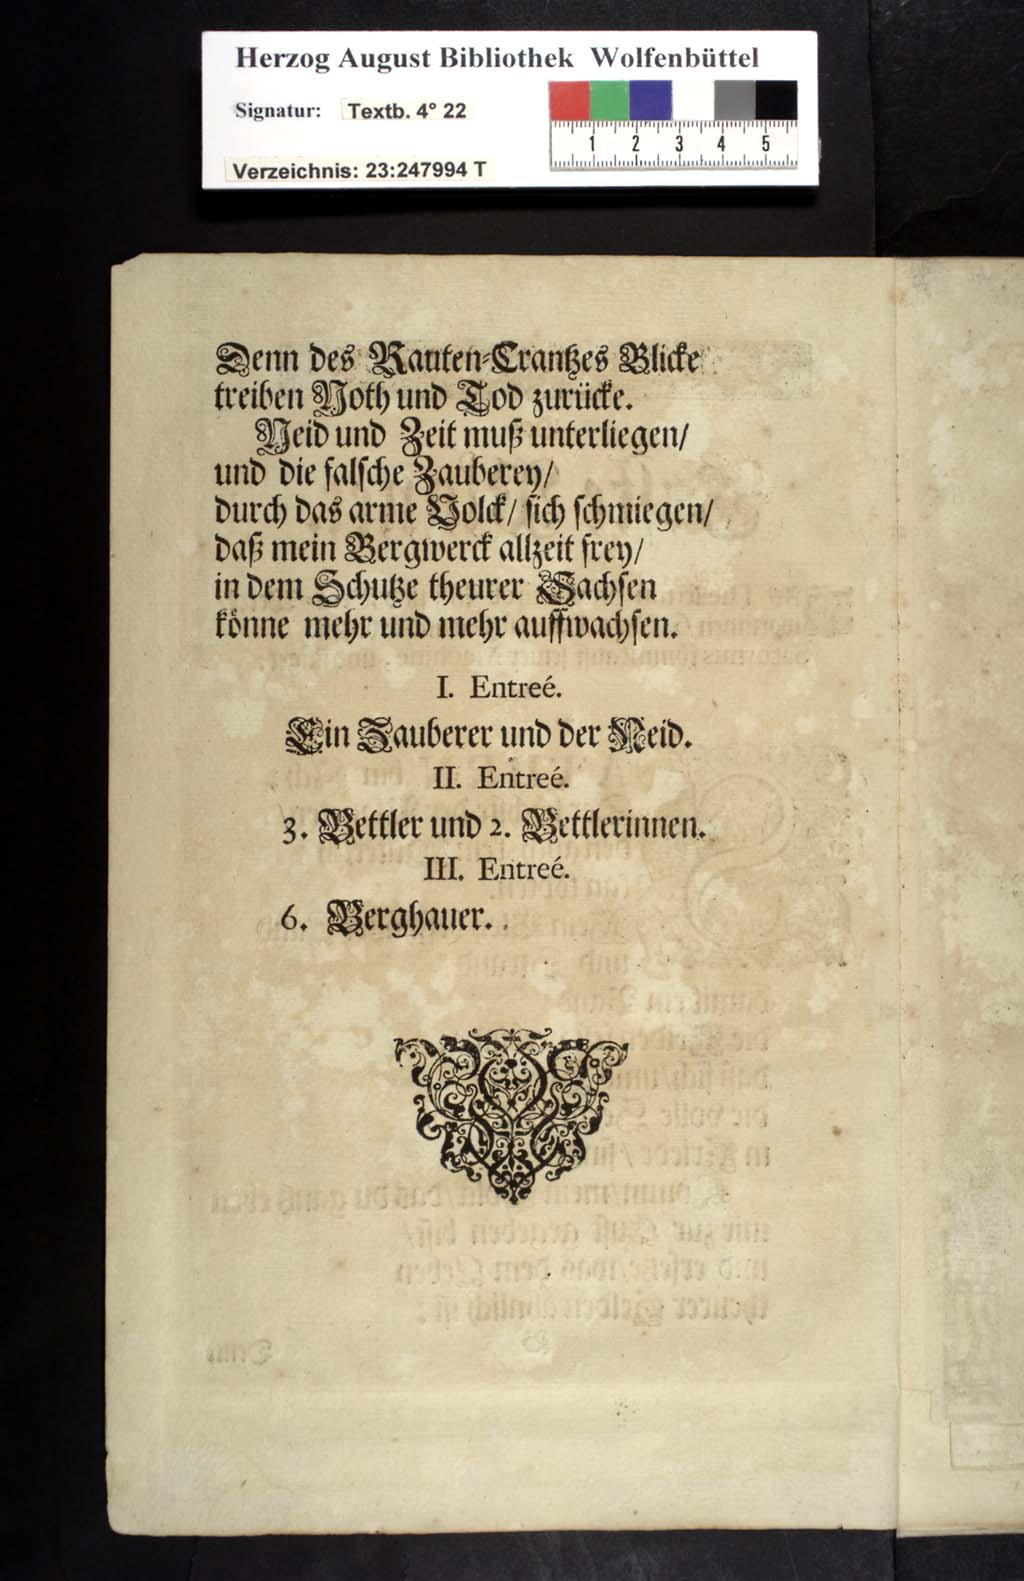 Herzog August Bibliothek Wolfenbüttel
Signatur: Textb. 4° 22
1 2 3 4 5
Verzeichnis: 23:247994 T
Denn des Rauten-Crantzes Blicke
treiben Noth und Tod zurücke.
Neid und Zeit muß unterliegen/
und die falsche Zauberey/
durch das arme Volck/ sich schmiegen/
daß mein Bergwerck allzeit frey/
in dem Schutze theurer Sachsen
könne mehr und mehr auffwachsen.
I. Entreé.
Ein Zauberer und der Neid.
II. Entreé.
3. Bettler und 2. Bettlerinnen.
III. Entreé.
6. Berghauer.